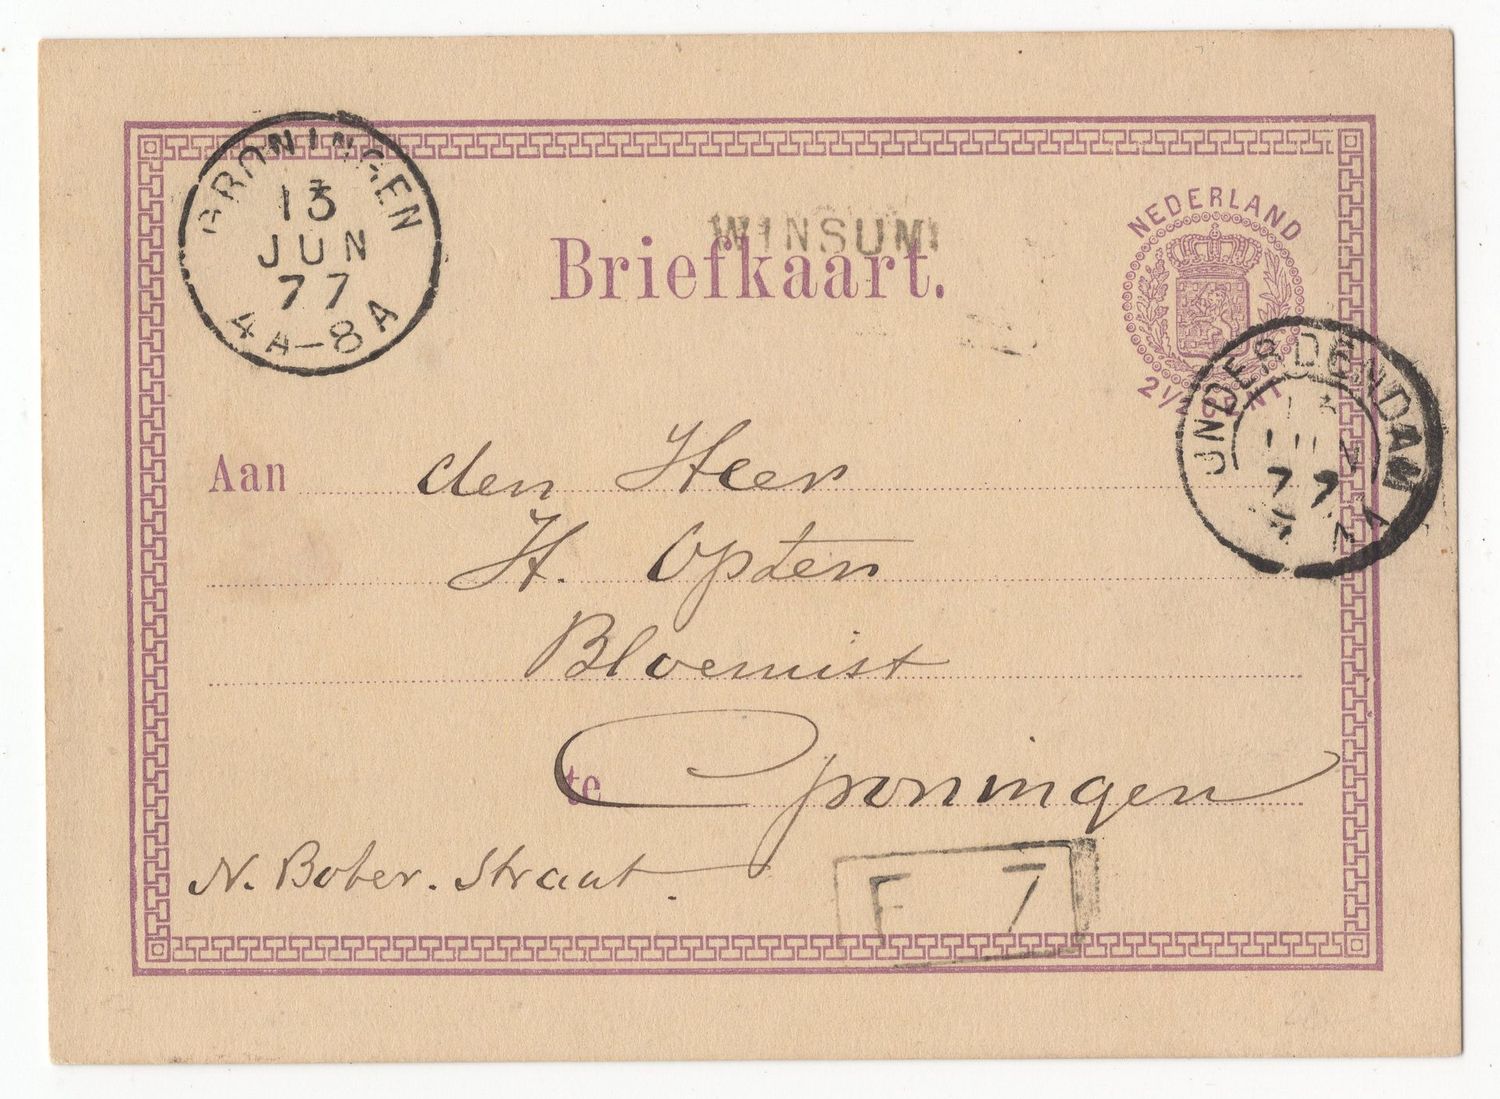 GRONINGEN
13
JUN
77
4A-8A
WINSUM
Briefkaart.
NEDERLAND
2½ CENT
ONDERDENDAM
13
JUN
77
Aan den Heer
H. Opten
Bloemist
te Groningen
N. Boter. Straat.
F 7